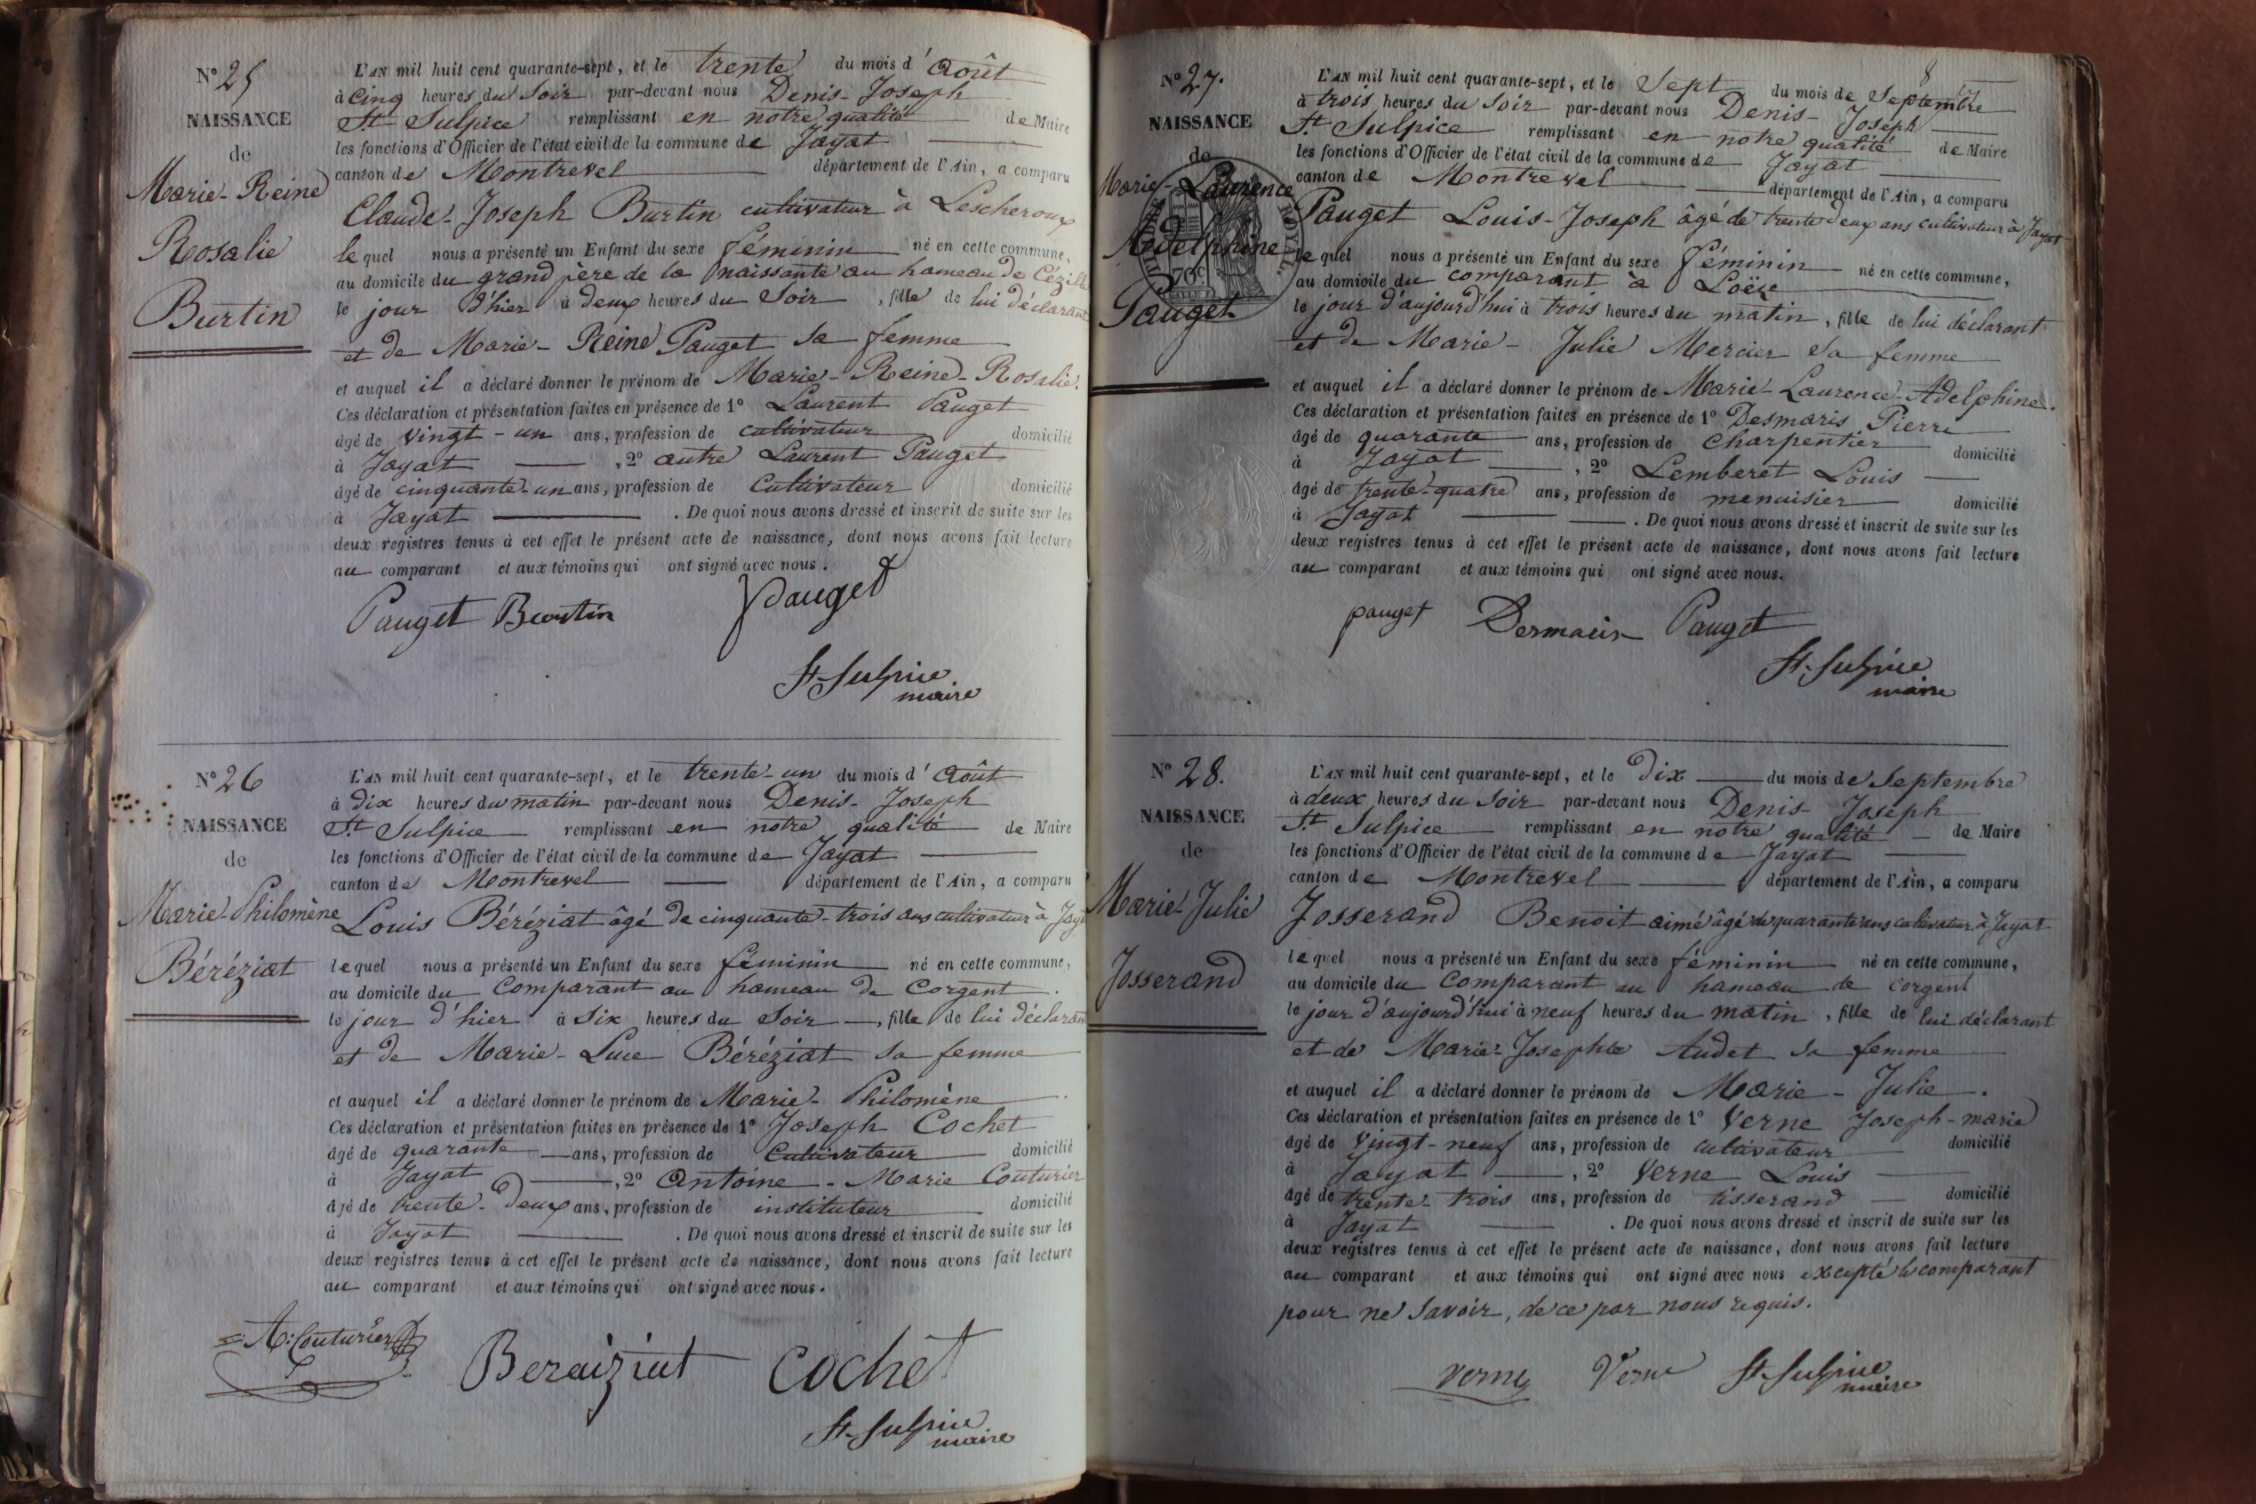 N° 25
NAISSANCE
de
Marie-Reine
Rosalie
Burtin
L'AN mil huit cent quarante-sept, et le trente du mois d'Août
à cinq heures du Soir par-devant nous Denis-Joseph
St Sulpice remplissant en notre qualité de Maire
les fonctions d'Officier de l'état civil de la commune de Jayat
canton de Montrevel département de l'Ain, a comparu
Claude-Joseph Burtin cultivateur à Lescheroux
lequel nous a présenté un Enfant du sexe féminin né en cette commune,
au domicile du grand père de la naissante au hameau de
le jour d'hier à deux heures du Soir, fille de lui déclarant
et de Marie-Reine Pauget sa femme
et auquel il a déclaré donner le prénom de Marie-Reine-Rosalie.
Ces déclaration et présentation faites en présence de 1° Laurent Pauget
âgé de vingt-un ans, profession de cultivateur domicilié
à Jayat, 2° autre Laurent Pauget
âgé de cinquante-un ans, profession de Cultivateur domicilié
à Jayat. De quoi nous avons dressé et inscrit de suite sur les
deux registres tenus à cet effet le présent acte de naissance, dont nous avons fait lecture
au comparant et aux témoins qui ont signé avec nous.
Pauget Burtin Pauget
St-Sulpice
maire
N° 26
NAISSANCE
de
Marie-Philomène
Béréziat
L'AN mil huit cent quarante-sept, et le trente-un du mois d'Août
à dix heures du matin par-devant nous Denis-Joseph
St Sulpice remplissant en notre qualité de Maire
les fonctions d'Officier de l'état civil de la commune de Jayat
canton de Montrevel département de l'Ain, a comparu
Louis Béréziat âgé de cinquante-trois ans cultivateur à Jayat
lequel nous a présenté un Enfant du sexe féminin né en cette commune,
au domicile du Comparant au hameau de Corgent.
le jour d'hier à Six heures du Soir, fille de lui déclarant
et de Marie-Luce Béréziat sa femme
et auquel il a déclaré donner le prénom de Marie-Philomène.
Ces déclaration et présentation faites en présence de 1° Joseph Cochet
âgé de quarante ans, profession de Cultivateur domicilié
à Jayat, 2° Antoine-Marie Couturier
âgé de trente-deux ans, profession de instituteur domicilié
à Jayat. De quoi nous avons dressé et inscrit de suite sur les
deux registres tenus à cet effet le présent acte de naissance, dont nous avons fait lecture
au comparant et aux témoins qui ont signé avec nous.
A: Couturier Beraiziat Cochet
St-Sulpice
maire
8
N° 27.
NAISSANCE
de
Marie-Laurence
Adelphine
Pauget
L'AN mil huit cent quarante-sept, et le Sept du mois de Septembre
à trois heures du Soir par-devant nous Denis-Joseph
St. Sulpice remplissant en notre qualité de Maire
les fonctions d'Officier de l'état civil de la commune de Jayat
canton de Montrevel département de l'Ain, a comparu
Pauget Louis-Joseph âgé de trente deux ans cultivateur à Jayat
lequel nous a présenté un Enfant du sexe féminin né en cette commune,
au domicile du comparant à Loëze
le jour d'aujourd'hui à trois heures du matin, fille de lui déclarant
et de Marie-Julie Mercier sa femme
et auquel il a déclaré donner le prénom de Marie-Laurence-Adelphine.
Ces déclaration et présentation faites en présence de 1° Desmaris Pierre
âgé de quarante ans, profession de charpentier domicilié
à Jayat, 2° Lemberet Louis
âgé de trente-quatre ans, profession de menuisier domicilié
à Jayat. De quoi nous avons dressé et inscrit de suite sur les
deux registres tenus à cet effet le présent acte de naissance, dont nous avons fait lecture
au comparant et aux témoins qui ont signé avec nous.
pauget Desmaris Pauget
St-Sulpice
maire
N° 28.
NAISSANCE
de
Marie-Julie
Josserand
L'AN mil huit cent quarante-sept, et le Dix du mois de Septembre
à deux heures du Soir par-devant nous Denis-Joseph
St. Sulpice remplissant en notre qualité de Maire
les fonctions d'Officier de l'état civil de la commune de Jayat
canton de Montrevel département de l'Ain, a comparu
Josserand Benoit aimé âgé de quarante ans cultivateur à Jayat
lequel nous a présenté un Enfant du sexe féminin né en cette commune,
au domicile du Comparant au hameau de Corgent
le jour d'aujourd'hui à neuf heures du matin, fille de lui déclarant
et de Marie-Josephte Audet sa femme
et auquel il a déclaré donner le prénom de Marie-Julie.
Ces déclaration et présentation faites en présence de 1° Verne Joseph-marie
âgé de vingt-neuf ans, profession de cultivateur domicilié
à Jayat, 2° Verne Louis
âgé de trente-trois ans, profession de tisserand domicilié
à Jayat. De quoi nous avons dressé et inscrit de suite sur les
deux registres tenus à cet effet le présent acte de naissance, dont nous avons fait lecture
au comparant et aux témoins qui ont signé avec nous excepté le comparant
pour ne savoir, de ce par nous requis.
verne Verne St-Sulpice
maire